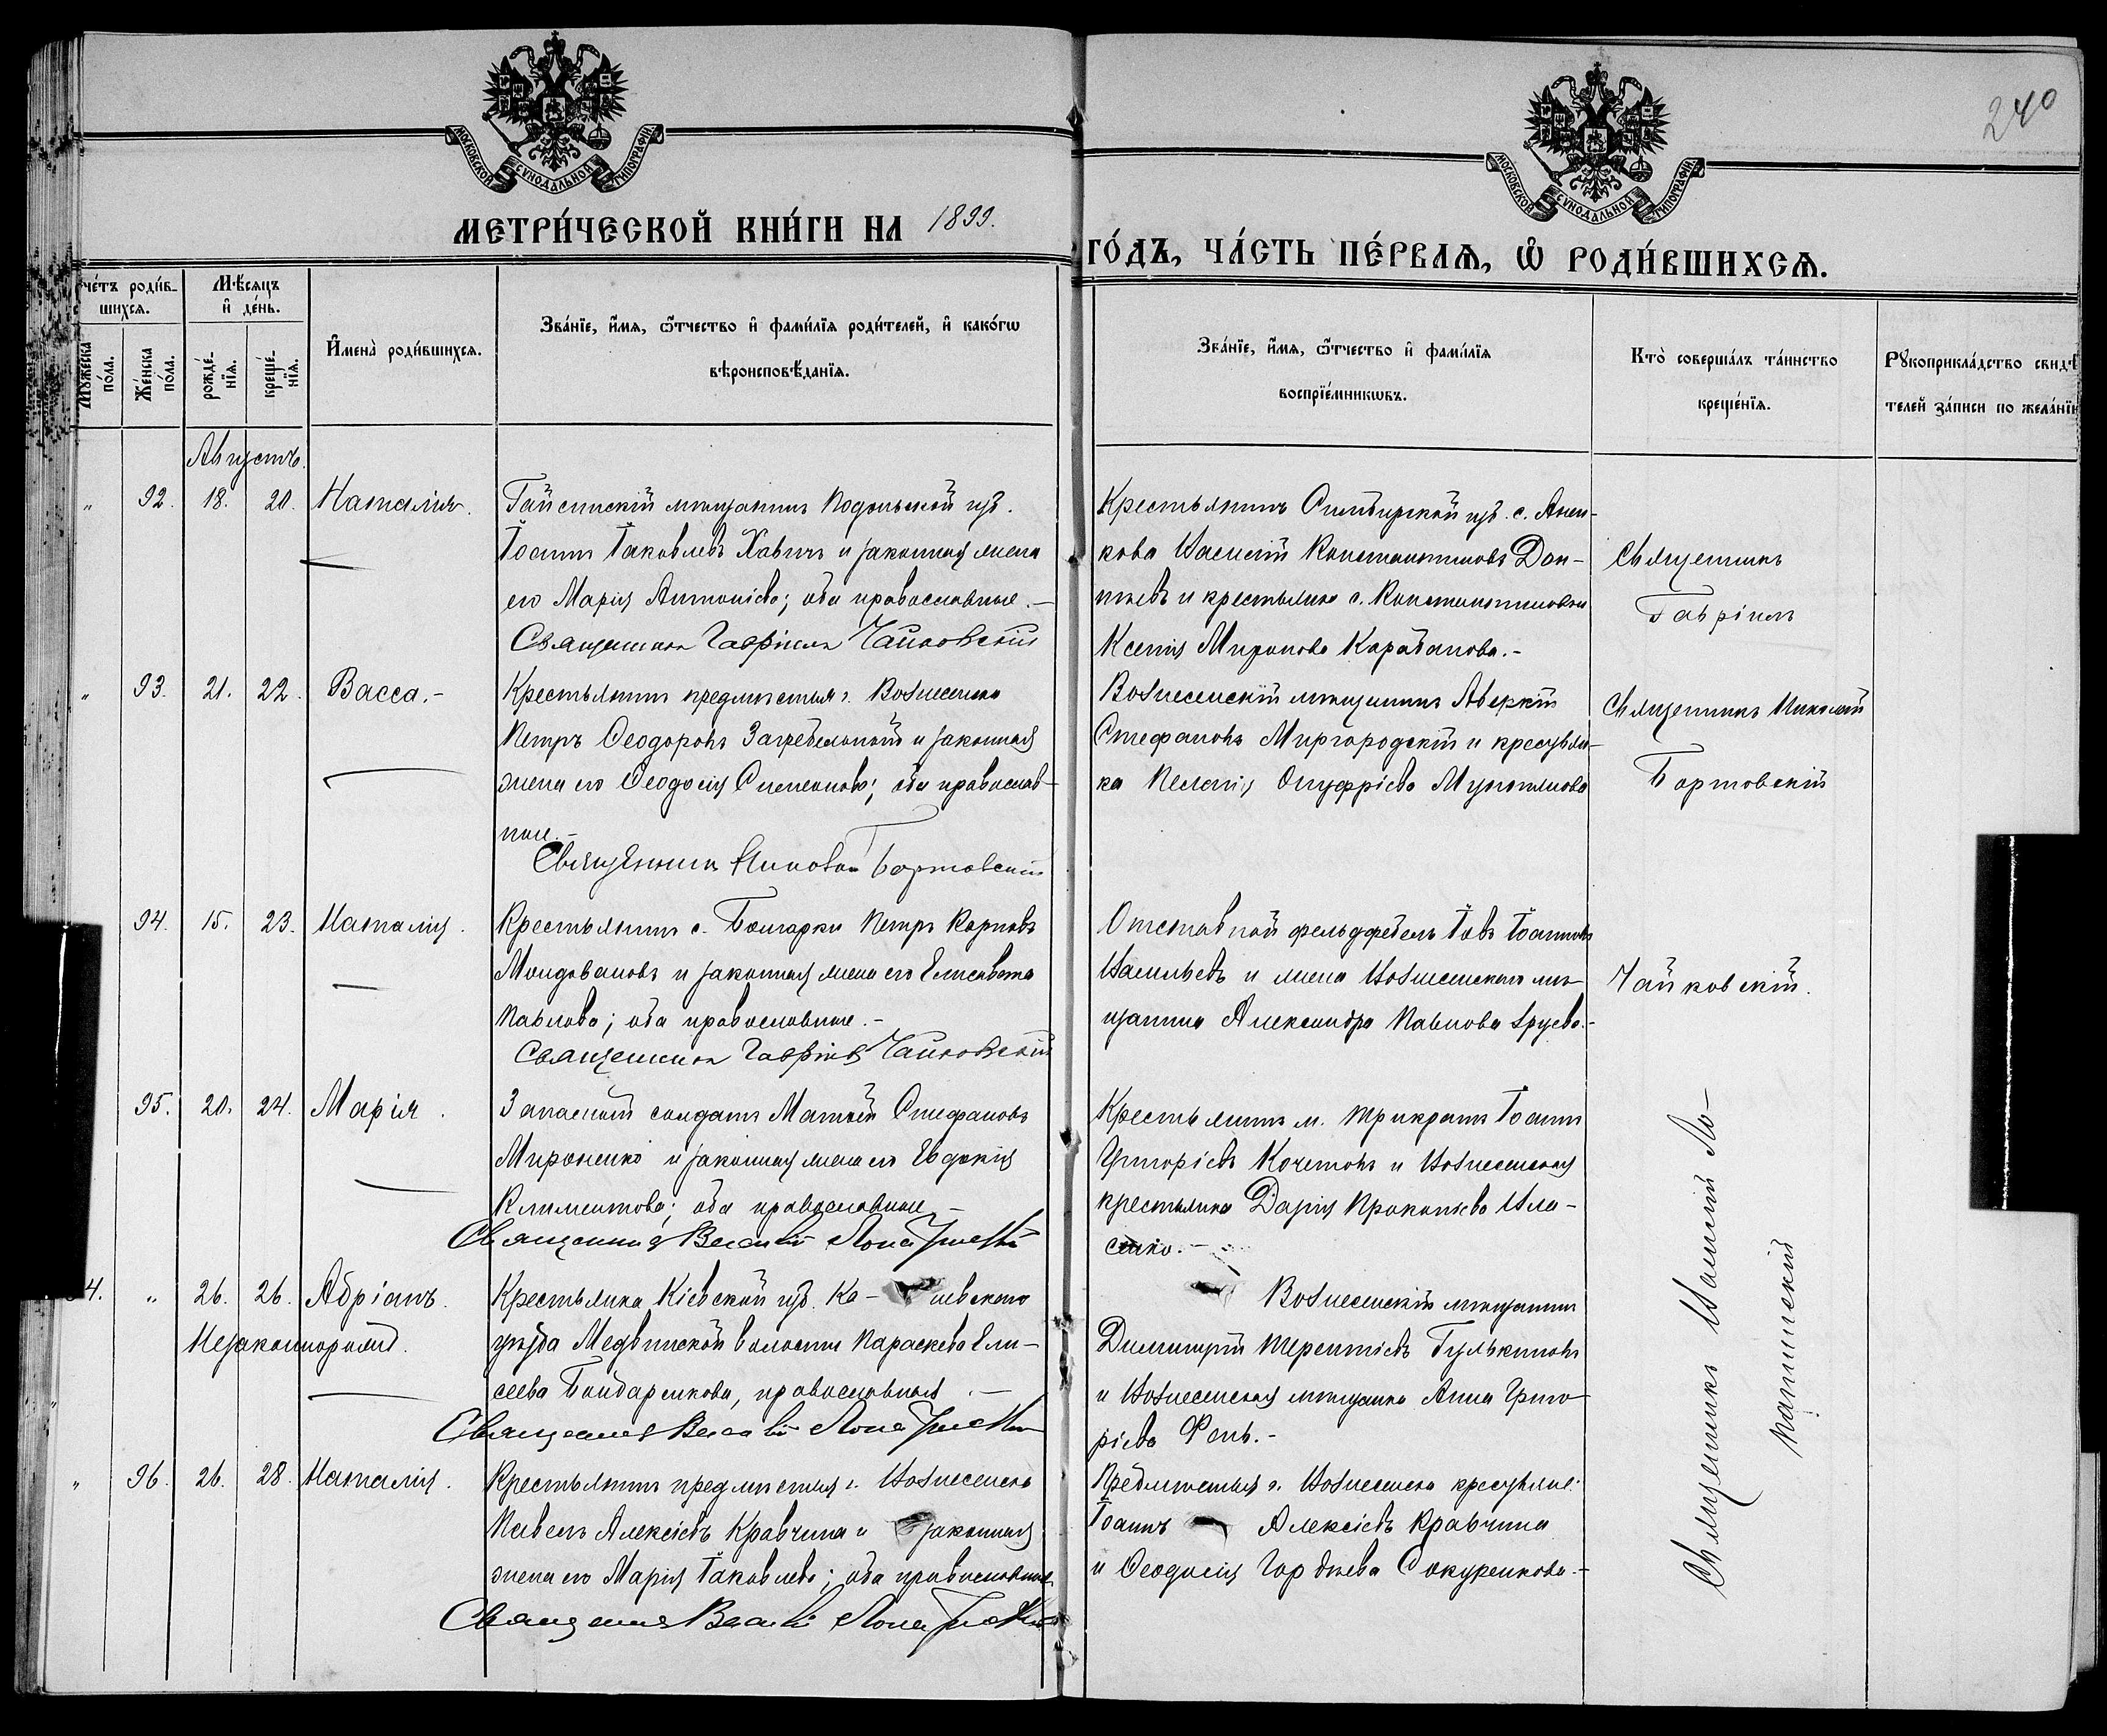 240
МОСКОВСКОЙ СѴНОДАЛЬНОЙ ТИПОГРАФІИ
МОСКОВСКОЙ СѴНОДАЛЬНОЙ ТИПОГРАФІИ
МЕТРИ́ЧЕСКОЙ КНИ́ГИ НА 1899.
ГО́ДЪ, ЧА́СТЬ ПЕ́РВАѦ, Ѡ҆ РОДИ́ВШИХСѦ.
че́тъ роди́в-
шихсѧ.
Мѣ́сѧцъ
и҆ де́нь.
Мꙋ́жеска
по́ла.
Же́нска
по́ла.
рожде́-
нїѧ.
креще́-
нїѧ.
И҆мена̀ роди́вшихсѧ.
Зва́нїе, и҆́мѧ, ѻ҆́тчество и҆ фами́лїѧ роди́телей, и҆ како́гѡ
вѣроисповѣ́данїѧ.
Зва́нїе, и҆́мѧ, ѻ҆́тчество и҆ фами́лїѧ
воспрїе́мникѡвъ.
Кто̀ соверша́лъ та́инство
креще́нїѧ.
Рꙋкоприкла́дство свидѣ́
телей за́писи по жела́нїю
Августъ.
" 92. 18. 20. Наталія.
Гайсинскій мѣщанинъ Подольской губ.
Іоаннъ Іаковлевъ Хавичъ и законная жена
его Марія Антоніева; оба православные.-
Священникъ Гавріилъ Чайковскій
Крестьянинъ Симбирской губ. с. Анен-
кова Василій Константиновъ Дон-
цевъ и крестьянка с. Константиновки
Ксенія Миронова Карабанова.-
Священникъ
Гавріилъ
" 93. 21. 22. Васса.-
Крестьянинъ предмѣстья г. Вознесенска
Петръ Ѳеодоровъ Загребельный и законная
жена его Ѳеодосія Симеонова; оба православ-
ные.-
Священникъ Николай Бортовскій
Вознесенскій мѣщанинъ Аверкій
Стефановъ Миргородскій и крестьян-
ка Пелагія Онуфріева
Священникъ Николай
Бортовскій
94. 15. 23. Наталія.
Крестьянинъ с. Болгарки Петръ Карповъ
Молдовановъ и законная жена его Елисавета
Павлова; оба православные.-
Священникъ Гавріилъ Чайковскій
Отставной фельдфебель Іовъ Іоанновъ
Васильевъ и жена Вознесенскаго мѣ-
щанина Александра Павлова
Чайковскій.
95. 20. 24. Марія.
Запасный солдатъ Матѳей Стефановъ
Мироненко и законная жена его Евдокія
Климентова; оба православные.-
Священникъ Василій
Крестьянинъ м. Трикратъ Іоаннъ
Григоріевъ Кочетовъ и Вознесенская
крестьянка Дарія Прокопіева Вла-
сенко.-
4. " 26. 26. Адріанъ.
Незаконнорожд.
Крестьянка Кіевской губ. Ка- невскаго
уѣзда Медвинской волости Параскева Ели-
сеева Бондаренкова, православная.-
Священникъ Василій
Вознесенскій мѣщанинъ
Димитрій Терентіевъ Гулькиновъ
и Вознесенская мѣщанка Анна Григо-
ріева Фень.-
" 96. 26. 28. Наталія.
Крестьянинъ предмѣстья г. Вознесенска
Павелъ Алексіевъ Кравчина и законная
жена его Марія Іаковлева; оба православные
Священникъ Василій
Предмѣстья г. Вознесенска крестьяне:
Іоаннъ Алексіевъ Кравчина
и Ѳеодосія Гордѣева Сокуренкова.-
Священникъ Василій